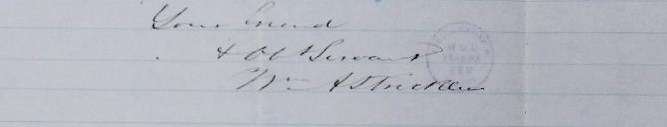 Your friend
& Ob Servant
Wm A Strickler